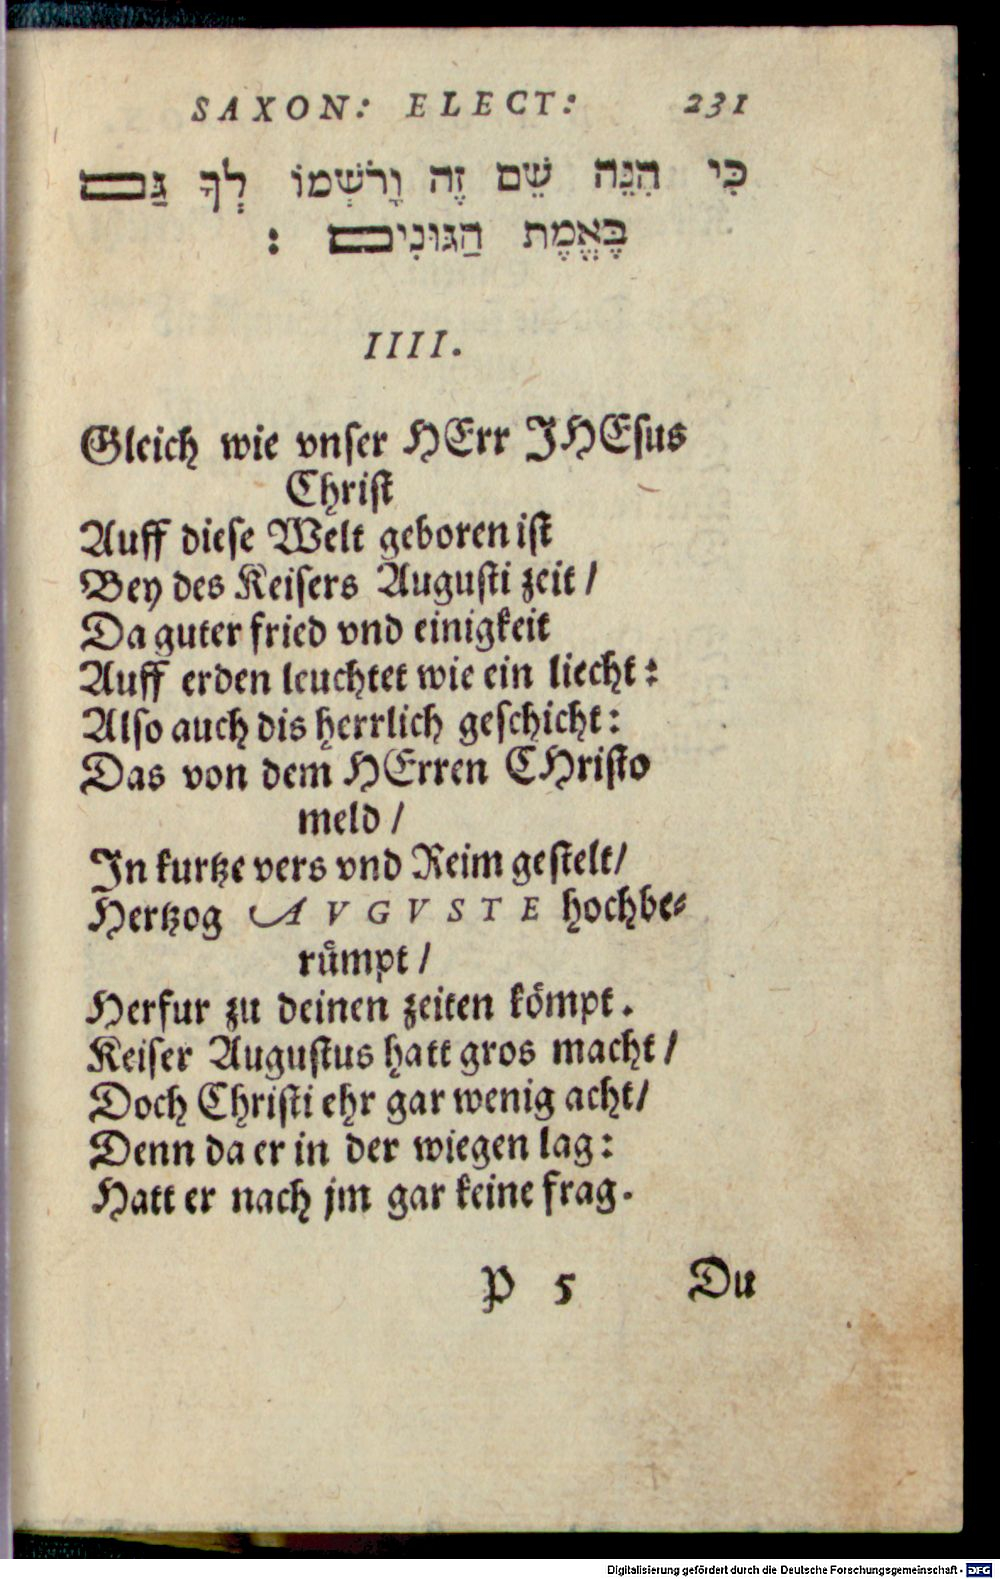 SAXON: ELECT: 231
כִּי הִנֵּה שֵׁם זֶה וָרֹשְׁמוֹ לְךָ גַּם
בֶּאֱמֶת הַגּוּנִים :
IIII.
Gleich wie vnser HErr JHEsus
Christ
Auff diese Welt geboren ist
Bey des Keisers Augusti zeit /
Da guter fried vnd einigkeit
Auff erden leuchtet wie ein liecht:
Also auch dis herrlich geschicht:
Das von dem HErren CHristo
meld /
In kurtze vers vnd Reim gestelt/
Hertzog AVGVSTE hochbe-
ruͤmpt /
Herfur zu deinen zeiten koͤmpt.
Keiser Augustus hatt gros macht /
Doch Christi ehr gar wenig acht/
Denn da er in der wiegen lag:
Hatt er nach jm gar keine frag.
P 5 Du
Digitalisierung gefördert durch die Deutsche Forschungsgemeinschaft - DFG